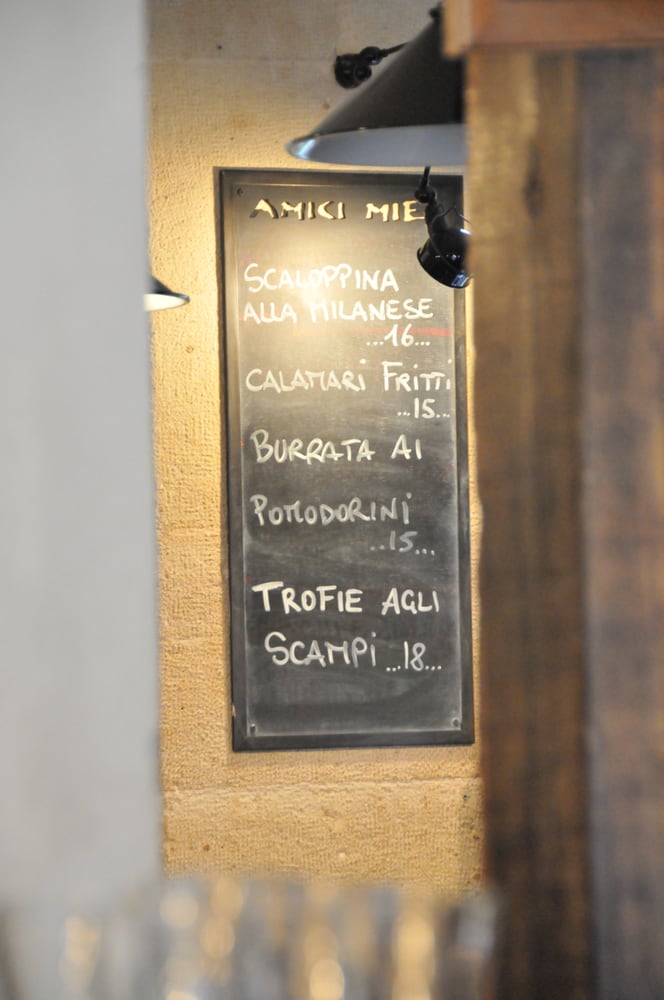 AMICI MIE
SCALOPPINA
ALLA MILANESE
...16...
CALAMARI FRITTI
...15...
BURRATA AI
POMODORINI
...15...
TROFIE AGLI
SCAMPI ...18...